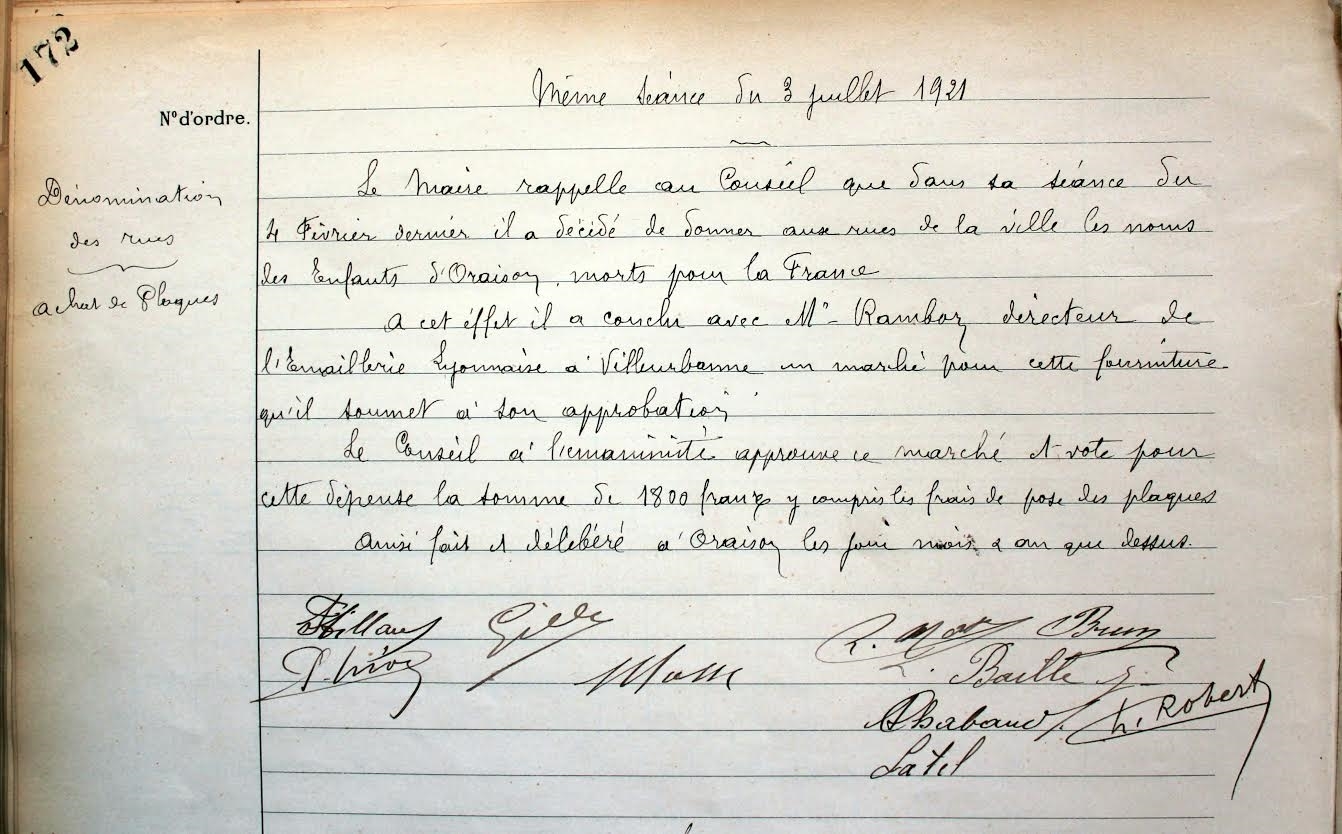 172
N° d'ordre.
Même séance du 3 juillet 1921
Dénomination
des rues
achat de Plaques
Le Maire rappelle au Conseil que dans sa séance du
4 Février dernier il a décidé de donner aux rues de la ville les noms
des Enfants d'Oraison, morts pour la France
A cet éffet il a conclu avec Mr Ramboz directeur de
l'Emaillerie Lyonnaise à Villeurbanne un marché pour cette fourniture
qu'il soumet à son approbation
Le Conseil à l'unanimité approuve ce marché et vote pour
cette dépense la somme de 1800 francs y compris les frais de pose des plaques
Ainsi fait et délibéré à Oraison les jour mois & an que dessus.
Brun
Masse
L. Baille
Chabaud L. Robert
Latil